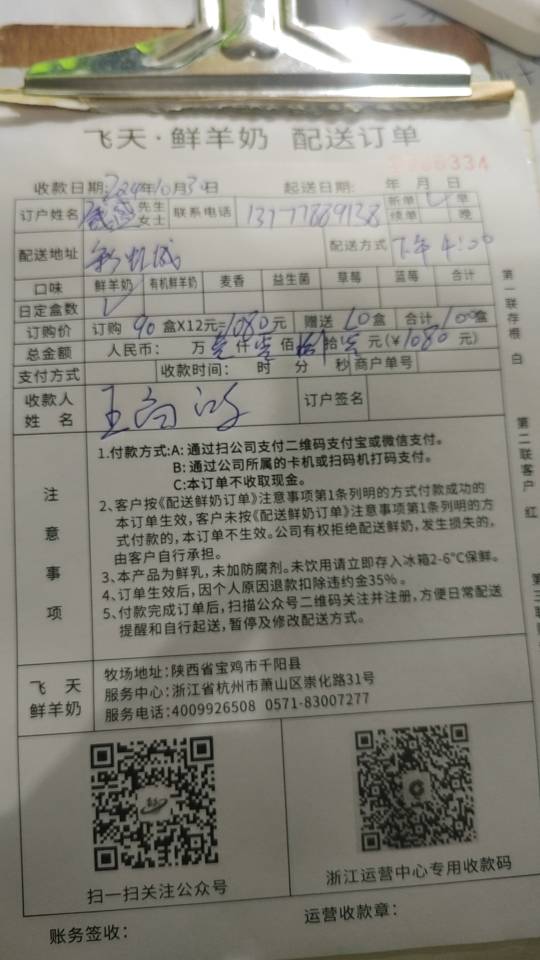 飞天·鲜羊奶 配送订单
334
收款日期:2024年10月30日 起送日期: 年 月 日
订户姓名 先生 女士 联系电话 新单 续单 早 晚
配送地址 配送方式 下午4:00
口味 鲜羊奶 有机鲜羊奶 麦香 益生菌 草莓 蓝莓 合计
日定盒数
订购价 订购 90 盒X12元=1080元 赠送 10盒 合计 100盒
总金额 人民币: 万 壹仟零佰捌拾零元(¥1080元)
支付方式 收款时间: 时 分 秒 商户单号
收款人 姓 名 订户签名
注意事项
1.付款方式:A: 通过扫公司支付二维码支付宝或微信支付。
B: 通过公司所属的卡机或扫码机打码支付。
C:本订单不收取现金。
2、客户按《配送鲜奶订单》注意事项第1条列明的方式付款成功的
本订单生效,客户未按《配送鲜奶订单》注意事项第1条列明的方
式付款的,本订单不生效。公司有权拒绝配送鲜奶,发生损失的,
由客户自行承担。
3、本产品为鲜乳,未加防腐剂。未饮用请立即存入冰箱2-6℃保鲜。
4、订单生效后,因个人原因退款扣除违约金35%。
5、付款完成订单后,扫描公众号二维码关注并注册,方便日常配送
提醒和自行起送,暂停及修改配送方式。
飞 天
鲜羊奶
牧场地址:陕西省宝鸡市千阳县
服务中心:浙江省杭州市萧山区崇化路31号
服务电话:4009926508 0571-83007277
扫一扫关注公众号
浙江运营中心专用收款码
账务签收:
运营收款章:
第一联存根 白
第二联客户 红
第三联